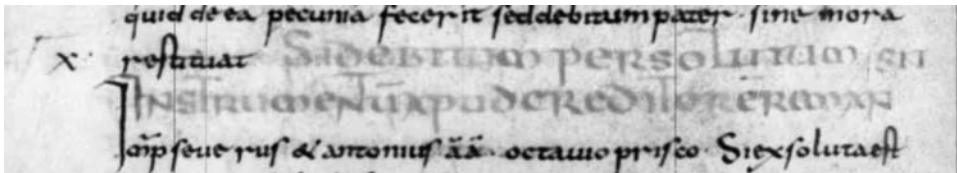 quid de ea pecunia fecerit sed debitum pater · sine mora
x · restituat Si debitum persolutum sit
Instrumentū apud creditorē reman
Im̄p seuerus & antonius āā · octauio prisco · Si exsoluta est